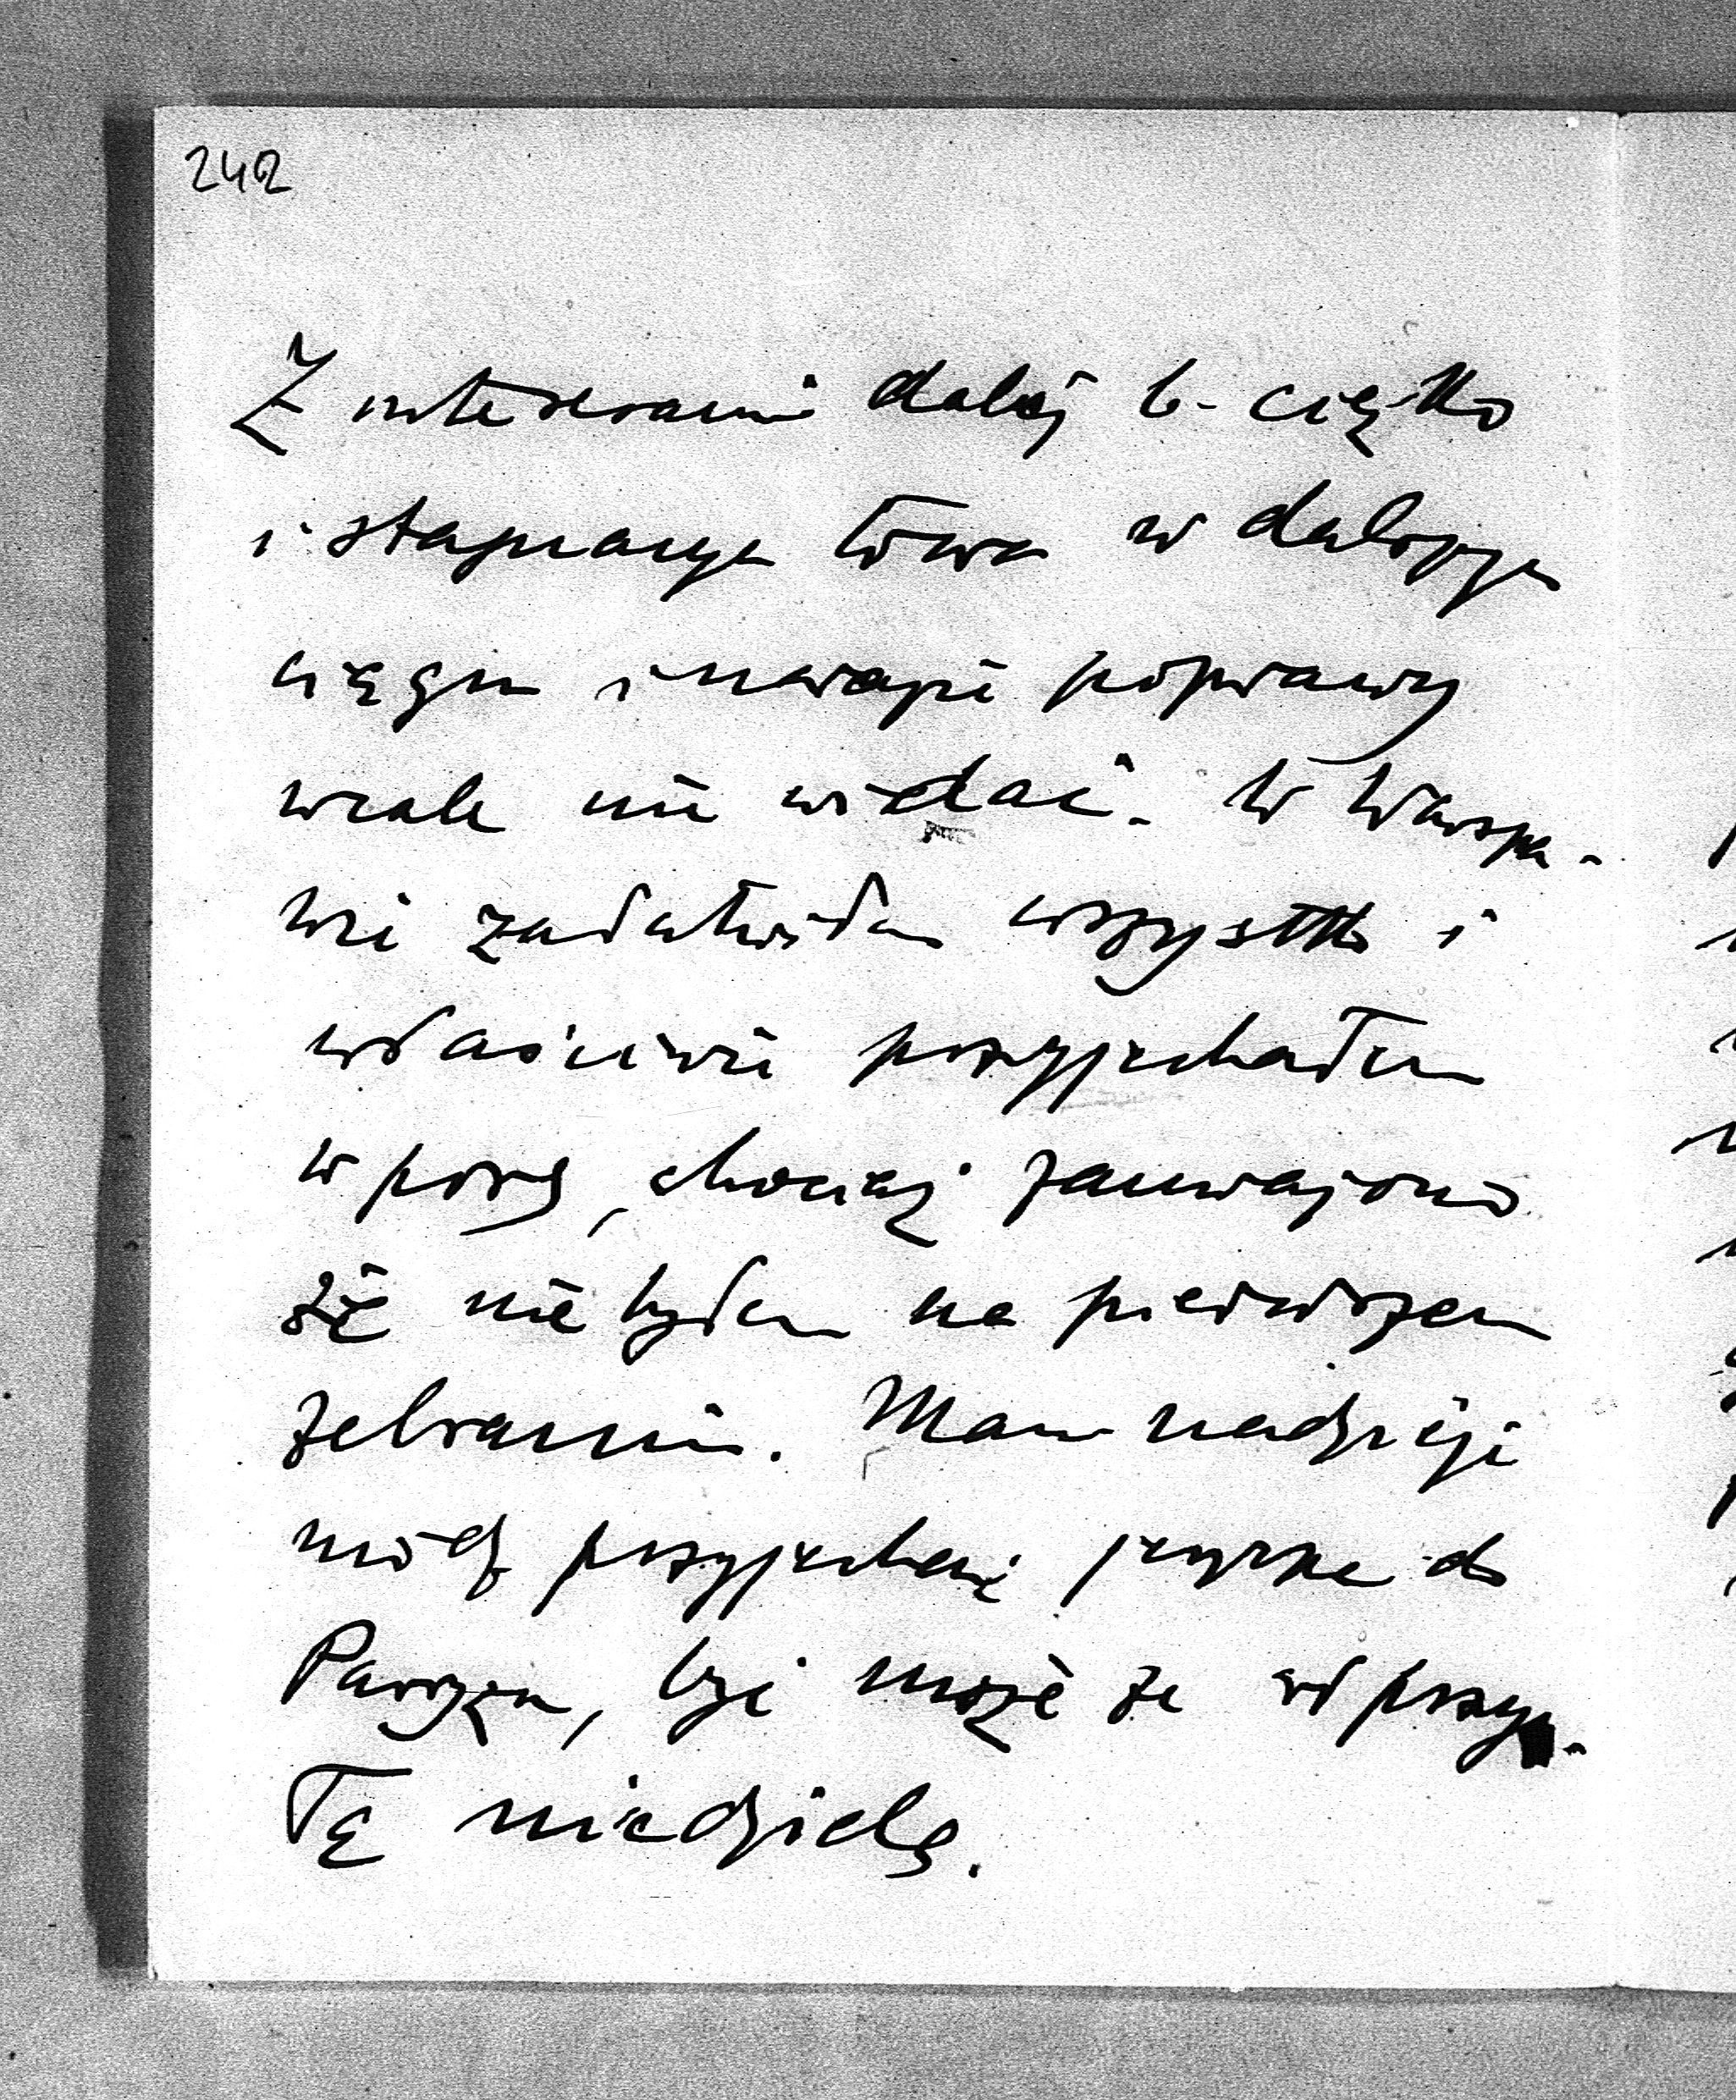 242
Z interesami dalej b. ciężko
i stagnacya trwa w dalszym
ciągu i nawapi poprawy
wcale nie widać. W Warsza-
wie załatwiłem wszystko i
właściwie przyjechałem
w porę, chociaż zauważono
że nie byłem na pierwszem
zebraniu. Mam nadzieję
módz przyjechać jeszcze do
Paryża, być może że w przy-
tę niedzielę.